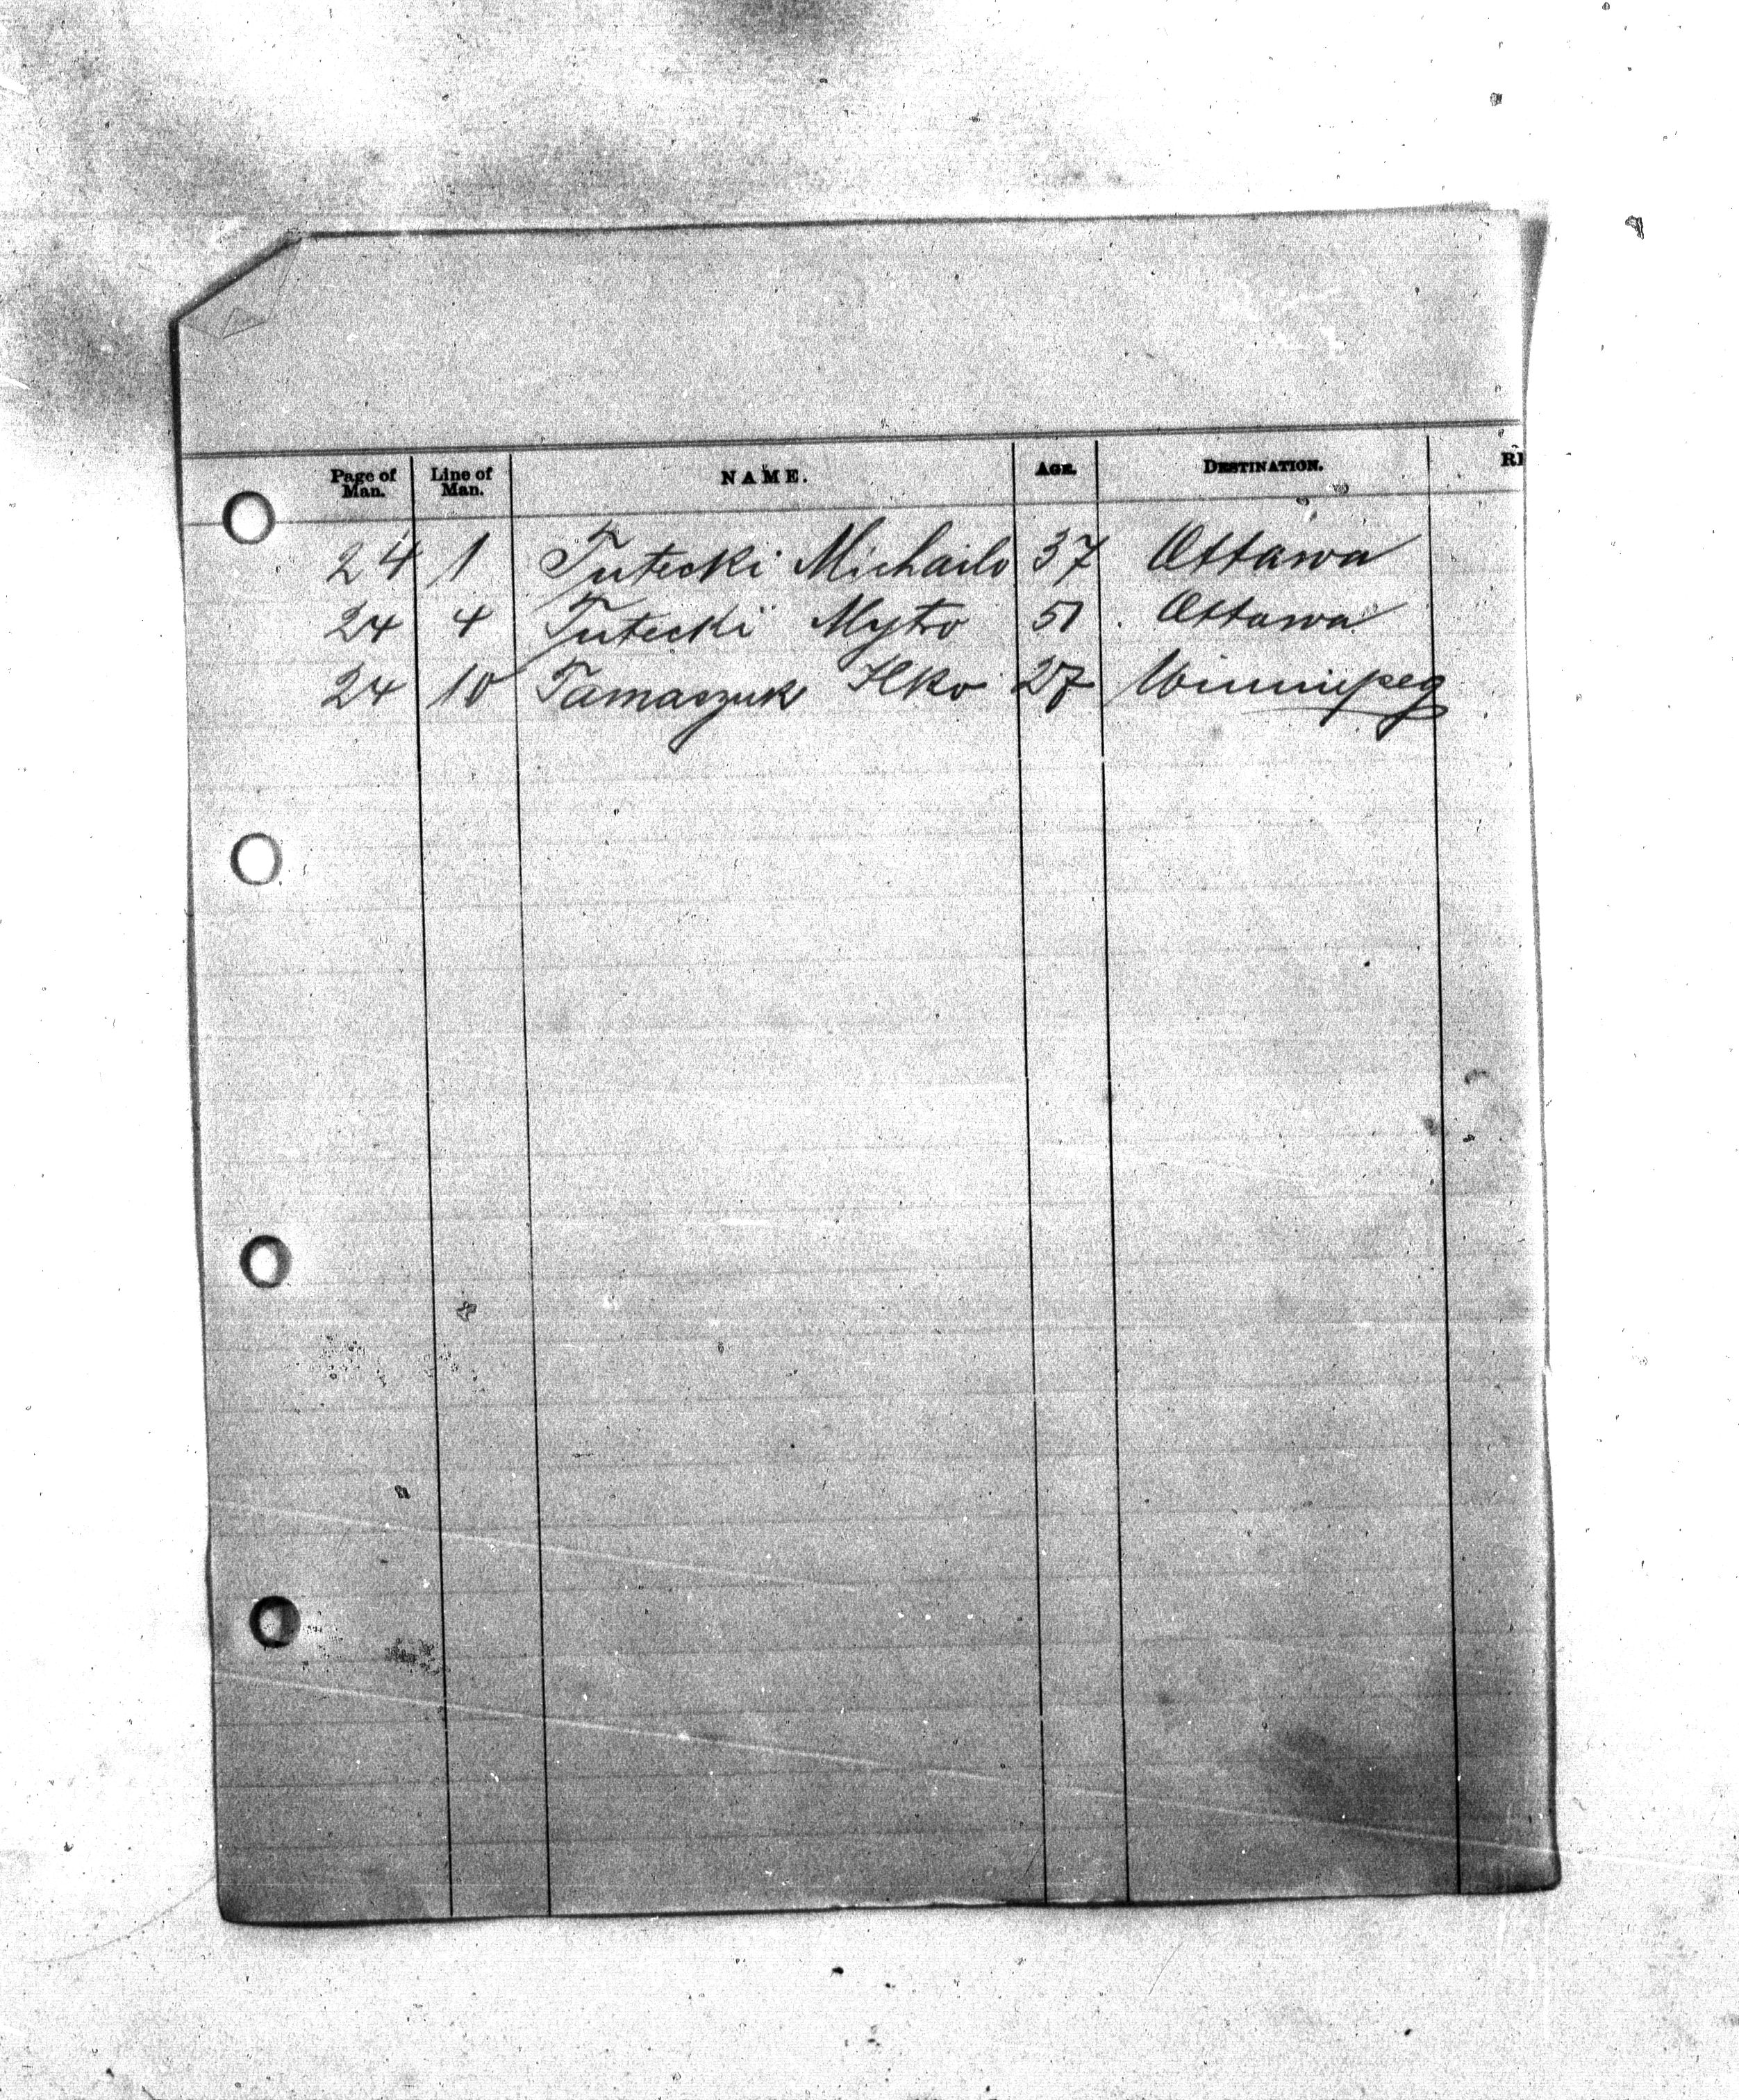 Page of Man. Line of Man. NAME. AGE. DESTINATION.
24 1 Tutecki Michailo 37 Ottawa
24 4 Tutecki Mytro 51 Ottawa
24 10 Tamaszuk Ilko 27 Winnipeg